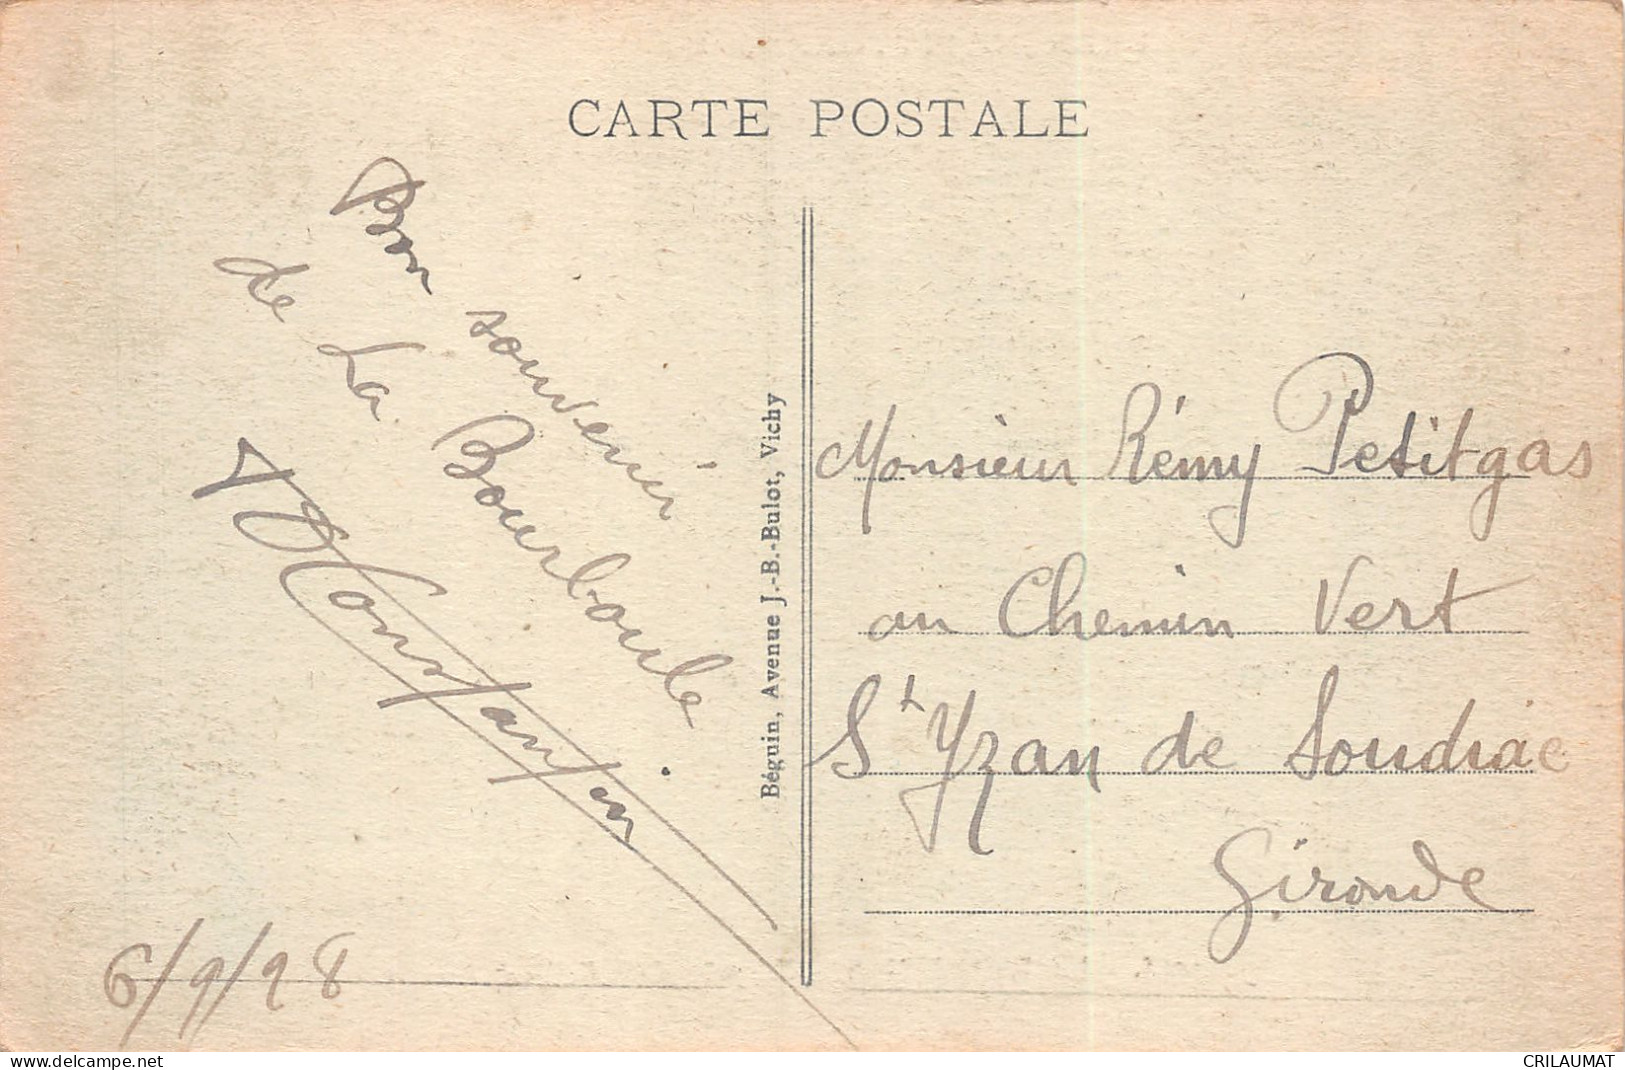 CARTE POSTALE
Bon souvenir
de La Bourboule
Constantin
6/9/28
Béguin, Avenue J.-B.-Bulot, Vichy
Monsieur Rémy Petitgas
au Chemin Vert
St Yzan de Soudiac
Gironde
www.delcampe.net
CRILAUMAT